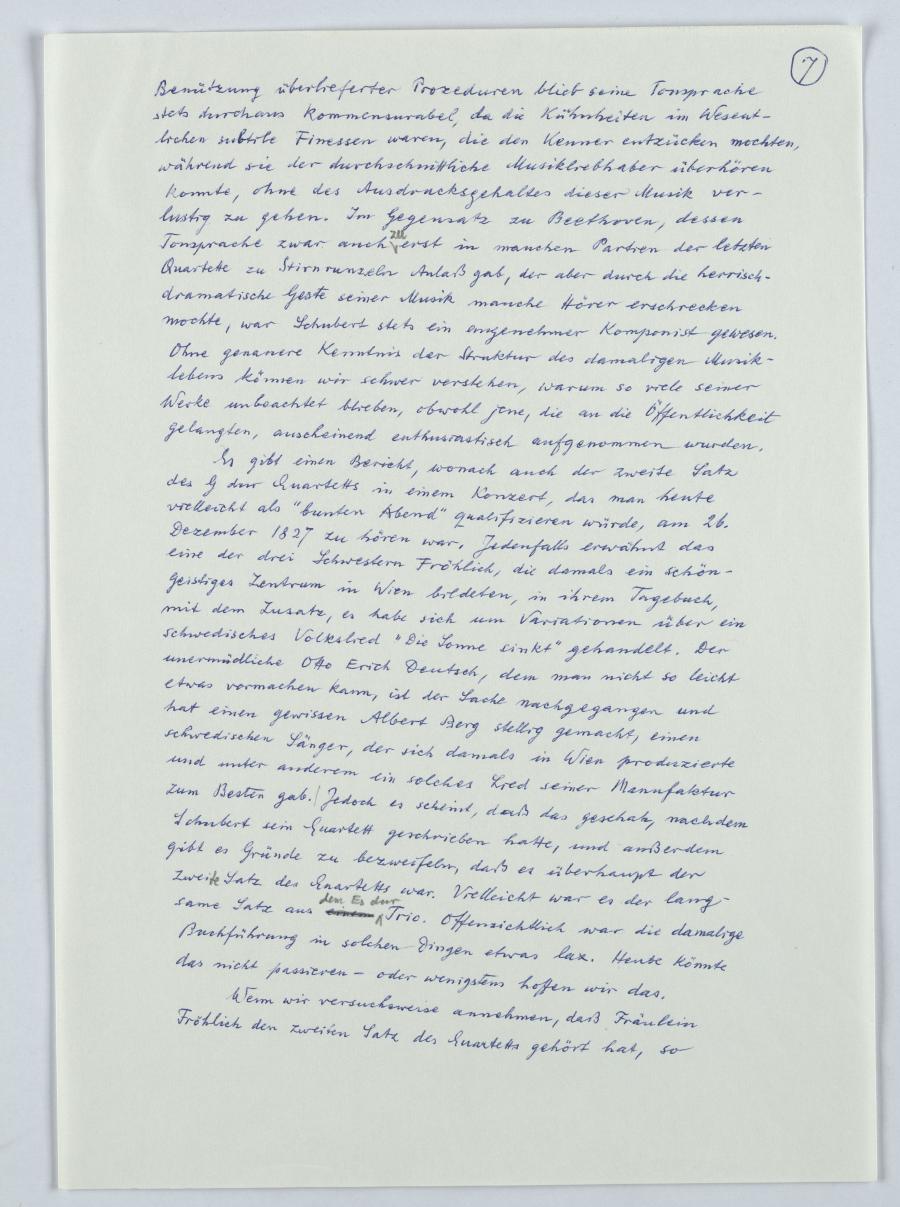 7
Benützung überlieferter Prozeduren blieb seine Tonsprache
stets durchaus kommensurabel, da die Kühnheiten im Wesent-
lichen subtile Finessen waren, die den Kenner entzücken mochten,
während sie der durchschnittliche Musikliebhaber überhören
konnte, ohne des Ausdrucksgehaltes dieser Musik ver-
lustig zu gehen. Im Gegensatz zu Beethoven, dessen
Tonsprache zwar auch zu erst in manchen Partien der letzten
Quartette zu Stirnrunzeln Anlaß gab, der aber durch die herrisch-
dramatische Geste seiner Musik manche Hörer erschrecken
mochte, war Schubert stets ein angenehmer Komponist gewesen.
Ohne genauere Kenntnis der Struktur des damaligen Musik-
lebens können wir schwer verstehen, warum so viele seiner
Werke unbeachtet blieben, obwohl jene, die an die Öffentlichkeit
gelangten, anscheinend enthusiastisch aufgenommen wurden.
Es gibt einen Bericht, wonach auch der zweite Satz
des G dur Quartetts in einem Konzert, das man heute
vielleicht als "bunten Abend" qualifizieren würde, am 26.
Dezember 1827 zu hören war. Jedenfalls erwähnt das
eine der drei Schwestern Fröhlich, die damals ein schön-
geistiges Zentrum in Wien bildeten, in ihrem Tagebuch,
mit dem Zusatz, es habe sich um Variationen über ein
schwedisches Volkslied "Die Sonne sinkt" gehandelt. Der
unermüdliche Otto Erich Deutsch, dem man nicht so leicht
etwas vormachen kann, ist der Sache nachgegangen und
hat einen gewissen Albert Berg stellig gemacht, einen
schwedischen Sänger, der sich damals in Wien produzierte
und unter anderem ein solches Lied seiner Manufaktur
zum Besten gab. Jedoch es scheint, daß das geschah, nachdem
Schubert sein Quartett geschrieben hatte, und außerdem
gibt es Gründe zu bezweifeln, daß es überhaupt der
zweite Satz des Quartetts war. Vielleicht war es der lang-
same Satz aus einem dem Es dur Trio. Offensichtlich war die damalige
Buchführung in solchen Dingen etwas lax. Heute könnte
das nicht passieren – oder wenigstens hoffen wir das.
Wenn wir versuchsweise annehmen, daß Fräulein
Fröhlich den zweiten Satz des Quartetts gehört hat, so